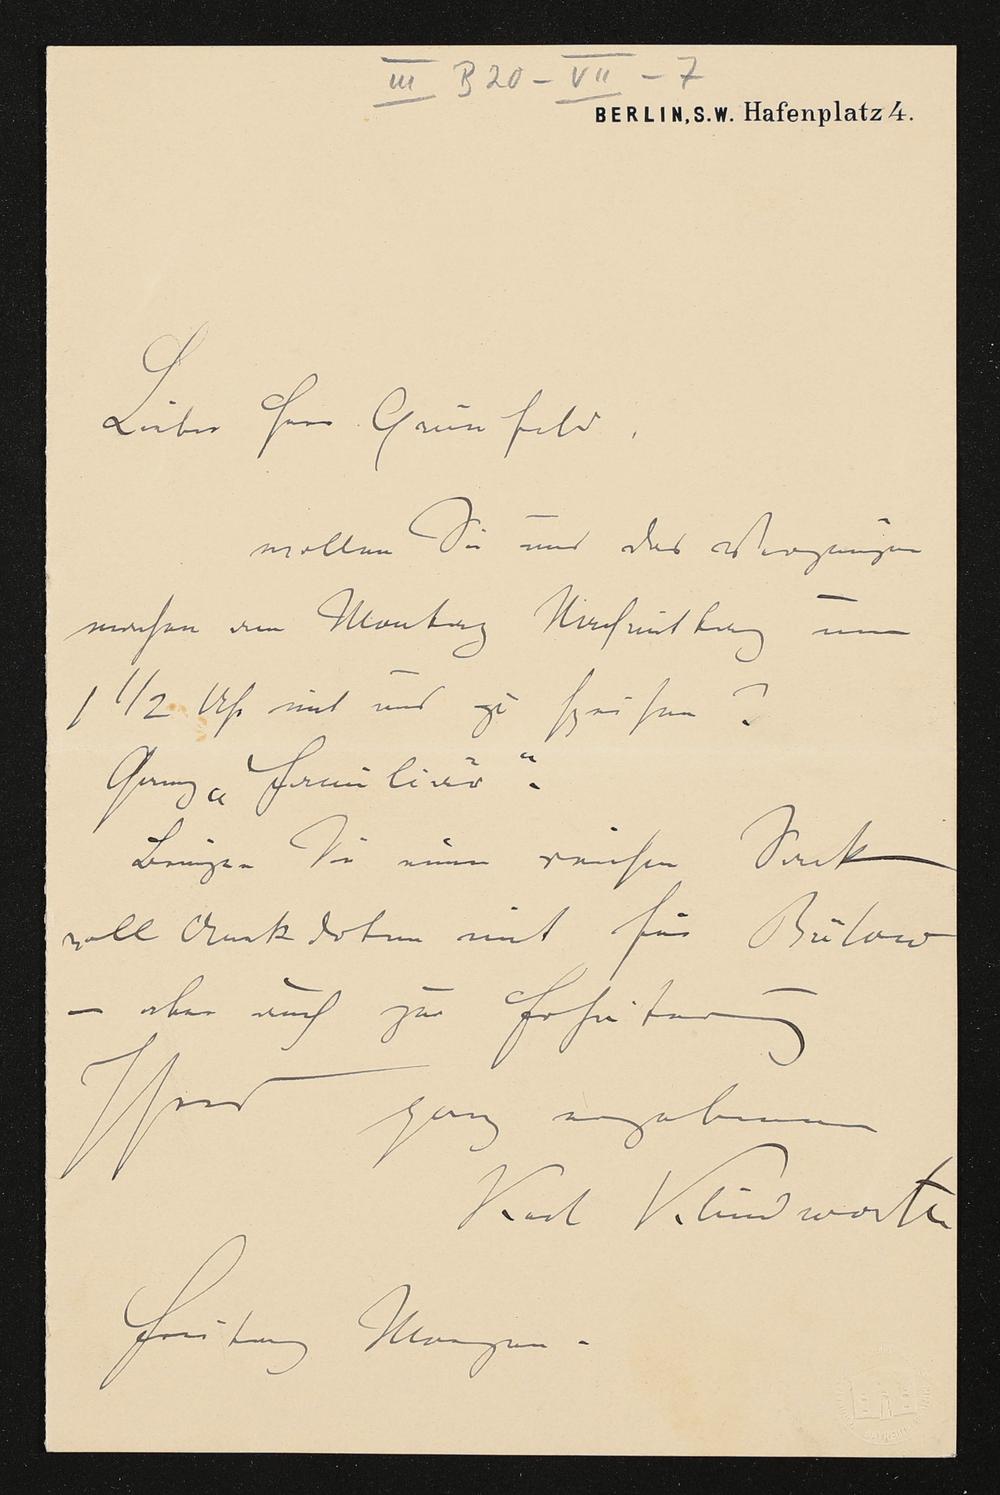 III B 20 - VII - 7
BERLIN, S.W. Hafenplatz 4.
Lieber Herr Grünfeld,
wollen Sie uns das Vergnügen
machen am Montag Nachmittag um
1 1/2 Uhr mit uns zu speisen?
Ganz „familiär“.
Bringen Sie einen reichen Sack
voll Anekdoten mit für Bülow
— aber auch zur Erheiterung
Ihres ganz ergebenen
Karl Klindworth
Freitag Morgen.